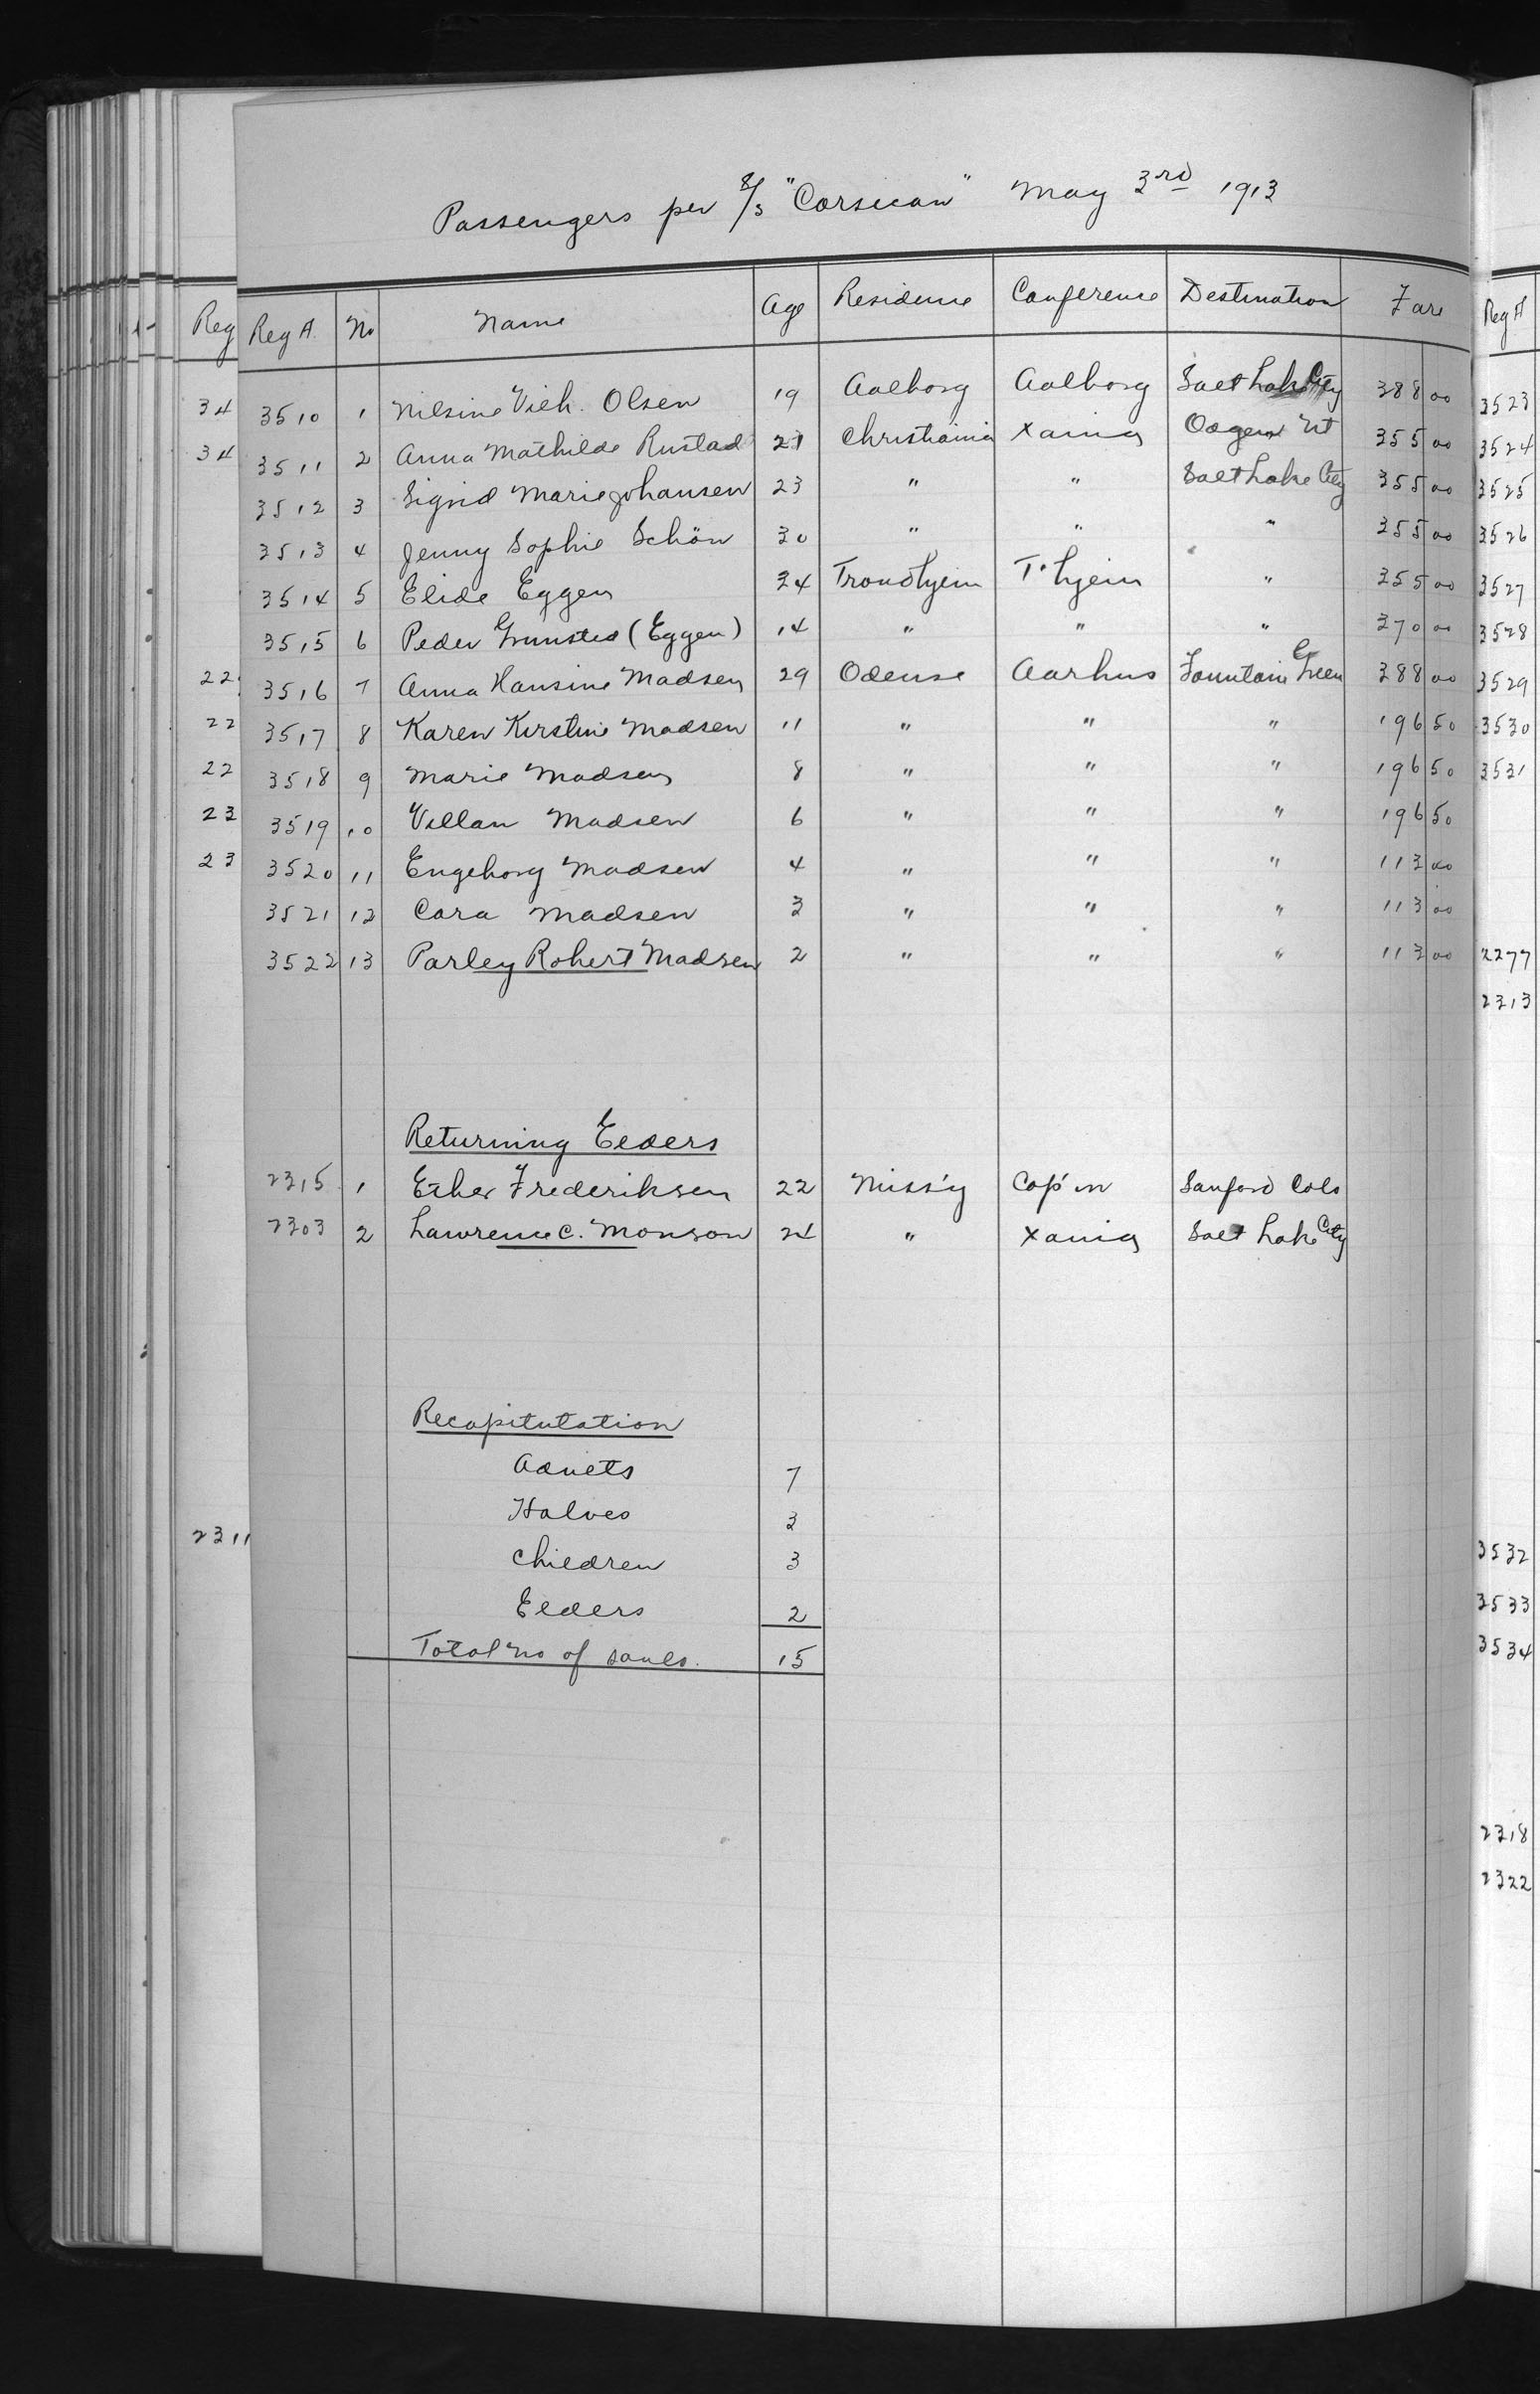 Passengers per S/S "Corsican" May 3rd 1913
Reg A. No Name Age Residence Conference Destination Fare
3510 1 Nilsine Vilh. Olsen 19 Aalborg Aalborg Salt Lake City 388 00
3511 2 Anna Mathilde Rustad 21 Christiania Xania Ogden Ut 355 00
3512 3 Sigrid Marie Johansen 23 " " Salt Lake City 355 00
3513 4 Jenny Sophie Schön 30 " " " 355 00
3514 5 Elide Eggen 34 Trondhjem T'hjem " 355 00
3515 6 Peder Grunsted (Eggen) 14 " " " 370 00
3516 7 Anna Hansine Madsen 29 Odense Aarhus Fountain Green 388 00
3517 8 Karen Kirstine Madsen 11 " " " 196 50
3518 9 Marie Madsen 8 " " " 196 50
3519 10 Villan Madsen 6 " " " 196 50
3520 11 Engeborg Madsen 4 " " " 113 00
3521 12 Cora Madsen 3 " " " 113 00
3522 13 Parley Robert Madsen 2 " " " 113 00
Returning Elders
2315 1 Frederiksen 22 Miss'y Cop'n Sanford Colo
2303 2 Lawrence C. Monson 24 " Xania Salt Lake City
Recapitulation
Adults 7
Halves 3
Children 3
Elders 2
Total no of souls. 15
Reg
34
34
22
22
22
23
23
2311
Reg A
3523
3524
3525
3526
3527
3528
3529
3530
3531
2277
2313
3532
3533
3534
2318
2322